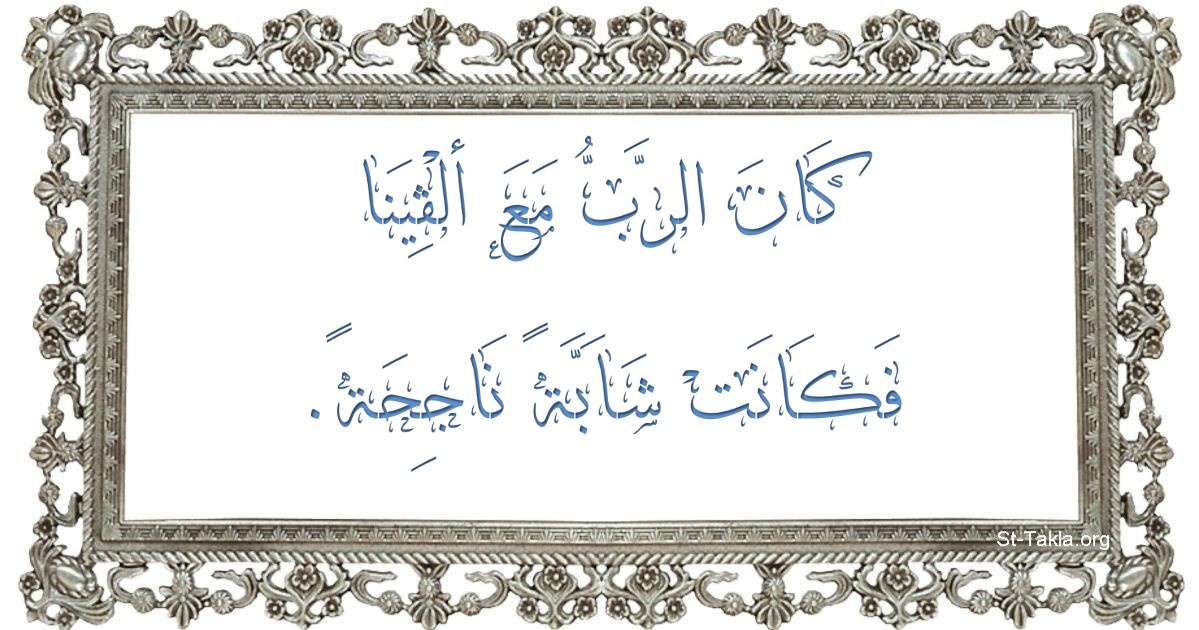 كَانَ الرَّبُّ مَعَ ألْڤِينَا
فَكَانَتْ شَابَّةً نَاجِحَةً.
St-Takla.org